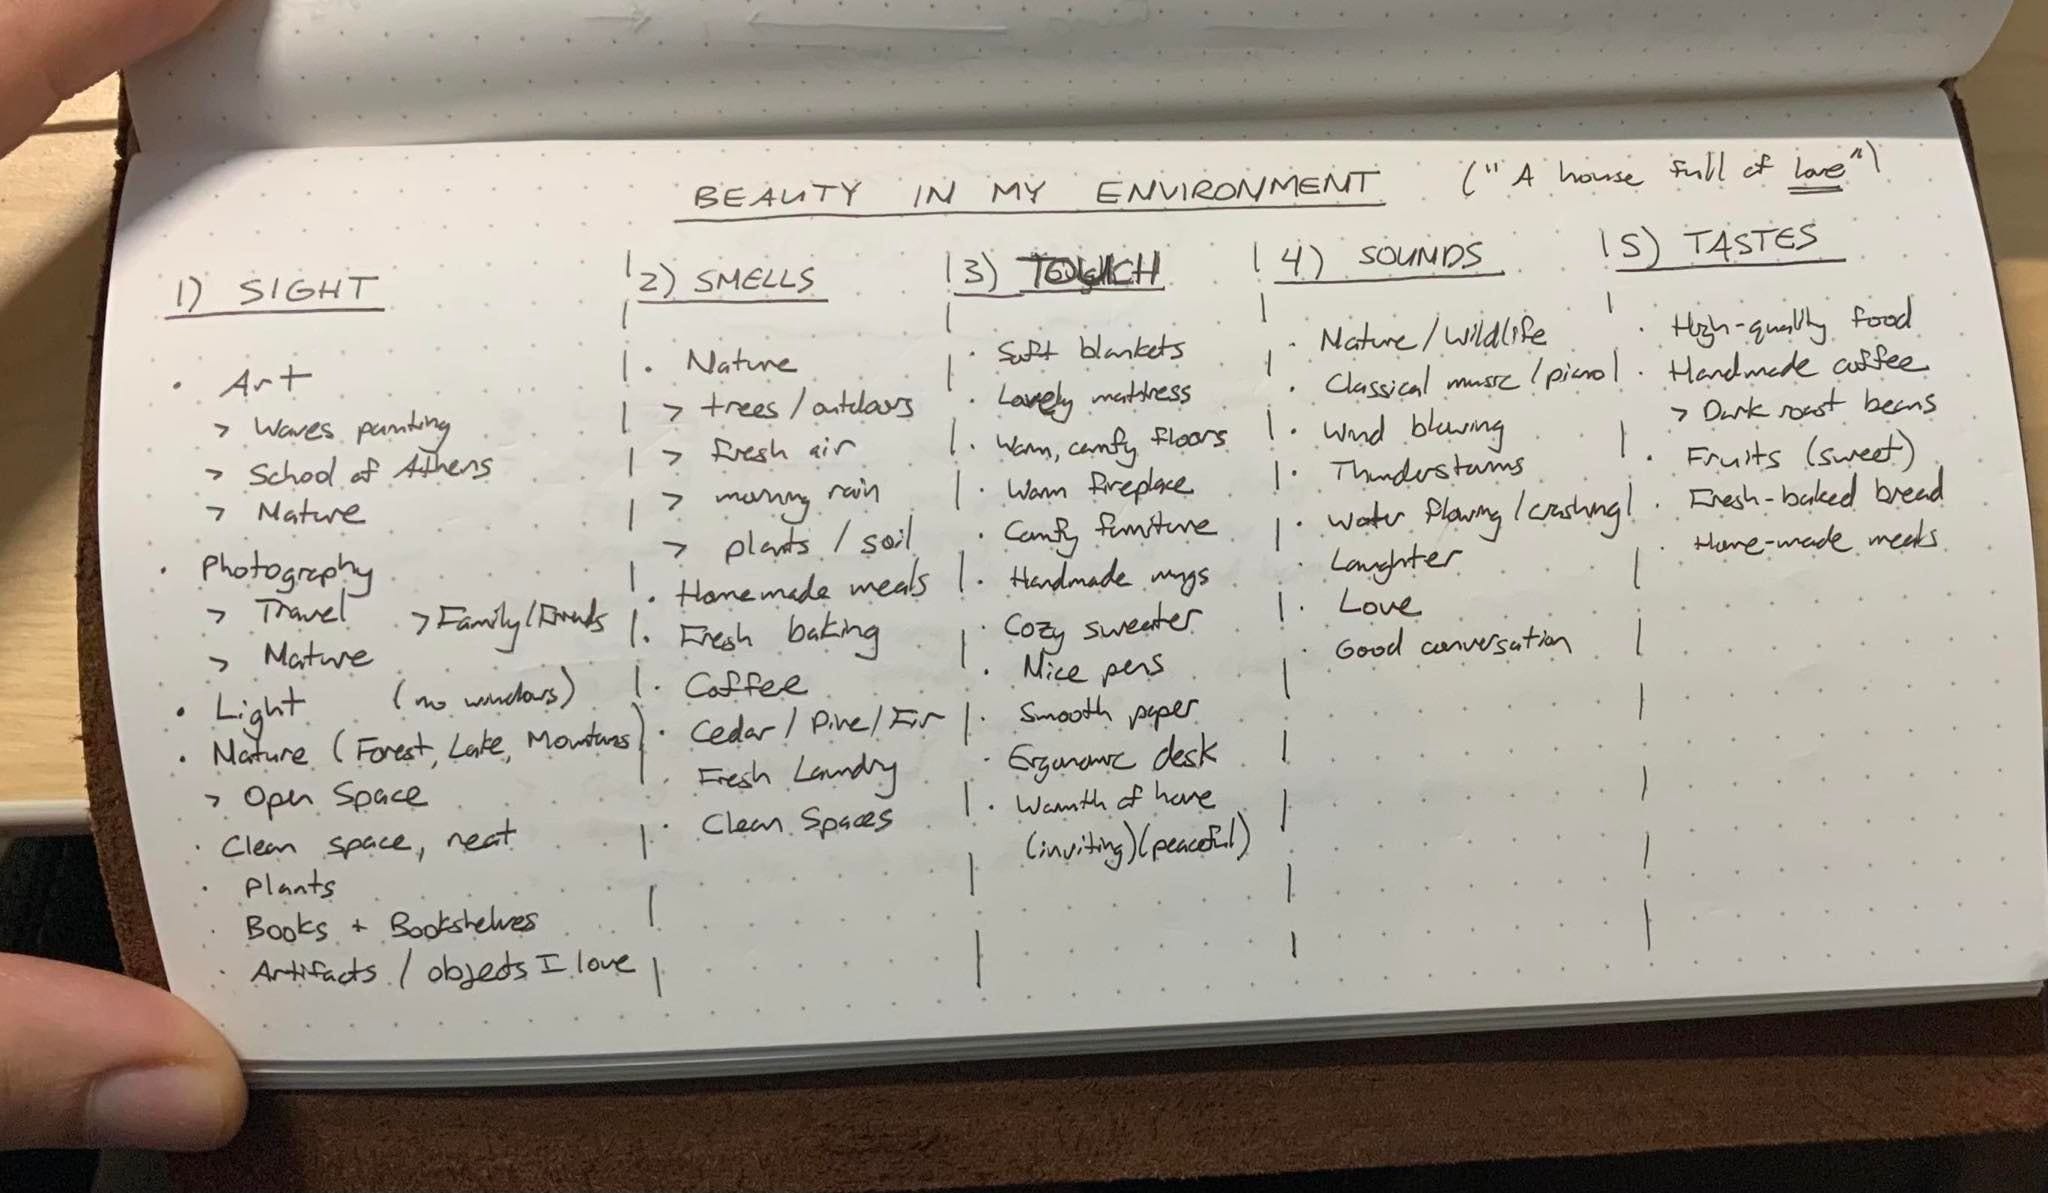 BEAUTY IN MY ENVIRONMENT ("A house full of love")
1) SIGHT
• Art
> Waves painting
> School of Athens
> Nature
• Photography
> Travel > Family/Friends
> Nature
• Light (no windows)
• Nature (Forest, Lake, Mountains)
> Open Space
• Clean space, neat
• Plants
• Books + Bookshelves
• Artifacts / objects I love
2) SMELLS
• Nature
> trees / outdoors
> fresh air
> morning rain
> plants / soil
• Homemade meals
• Fresh baking
• Coffee
• Cedar / Pine / Fir
• Fresh Laundry
• Clean Spaces
3) TOUCH
• Soft blankets
• Lovely mattress
• Warm, comfy floors
• Warm fireplace
• Comfy furniture
• Handmade mugs
• Cozy sweater
• Nice pens
• Smooth paper
• Ergonomic desk
• Warmth of home
(inviting) (peaceful)
4) SOUNDS
• Nature / Wildlife
• Classical music / piano
• Wind blowing
• Thunderstorms
• Water flowing / crashing
• Laughter
• Love
• Good conversation
5) TASTES
• High-quality food
• Handmade coffee
> Dark roast beans
• Fruits (sweet)
• Fresh-baked bread
• Home-made meals